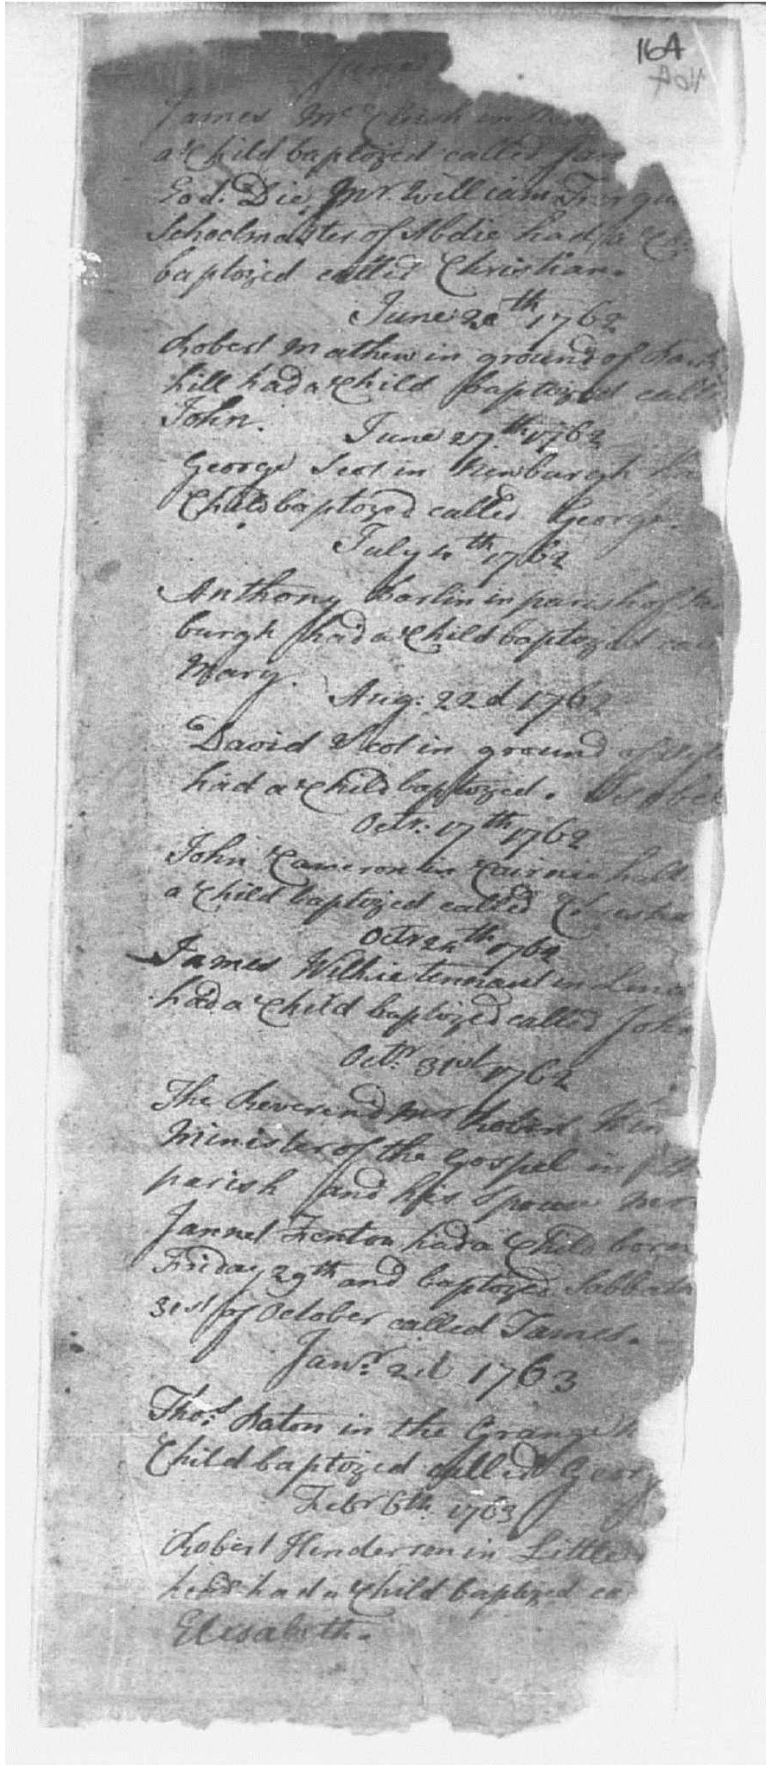 16A
James
James Mc Cliesh in
a Child baptized called Jan
Eod: Die, Mr William Fergu
Schoolmaster of Abdie had a
baptized called Christian.
June 20th 1762
Robert Mathew in ground of
hill had a Child baptized call
John.
June 27th 1762
George Scot in Newburgh
Child baptized called George
July 4th 1762
Anthony in parish of
burgh had a Child baptized ca
Mary.
Aug: 22d 1762
David Scot in ground of
had a Child baptized.
Octr: 17th 1762
John Cameron in Cairnie
a Child baptized called
Octr 24th 1762
James Wilkie tennant in
had a Child baptized called John
Octr. 31st 1762
The Reverend Mr Robert
Minister of the Gospel in
parish and his Spouse
Jannet Fenton had a Child born
Friday 29th and baptized Sabbath
31st of October called James.
Janr. 2d 1763
Thos. Paton in the Grange
Child baptized called Geor
Febr 6th 1763
Robert Henderson in Little
head had a Child baptized ca
Elisabeth.